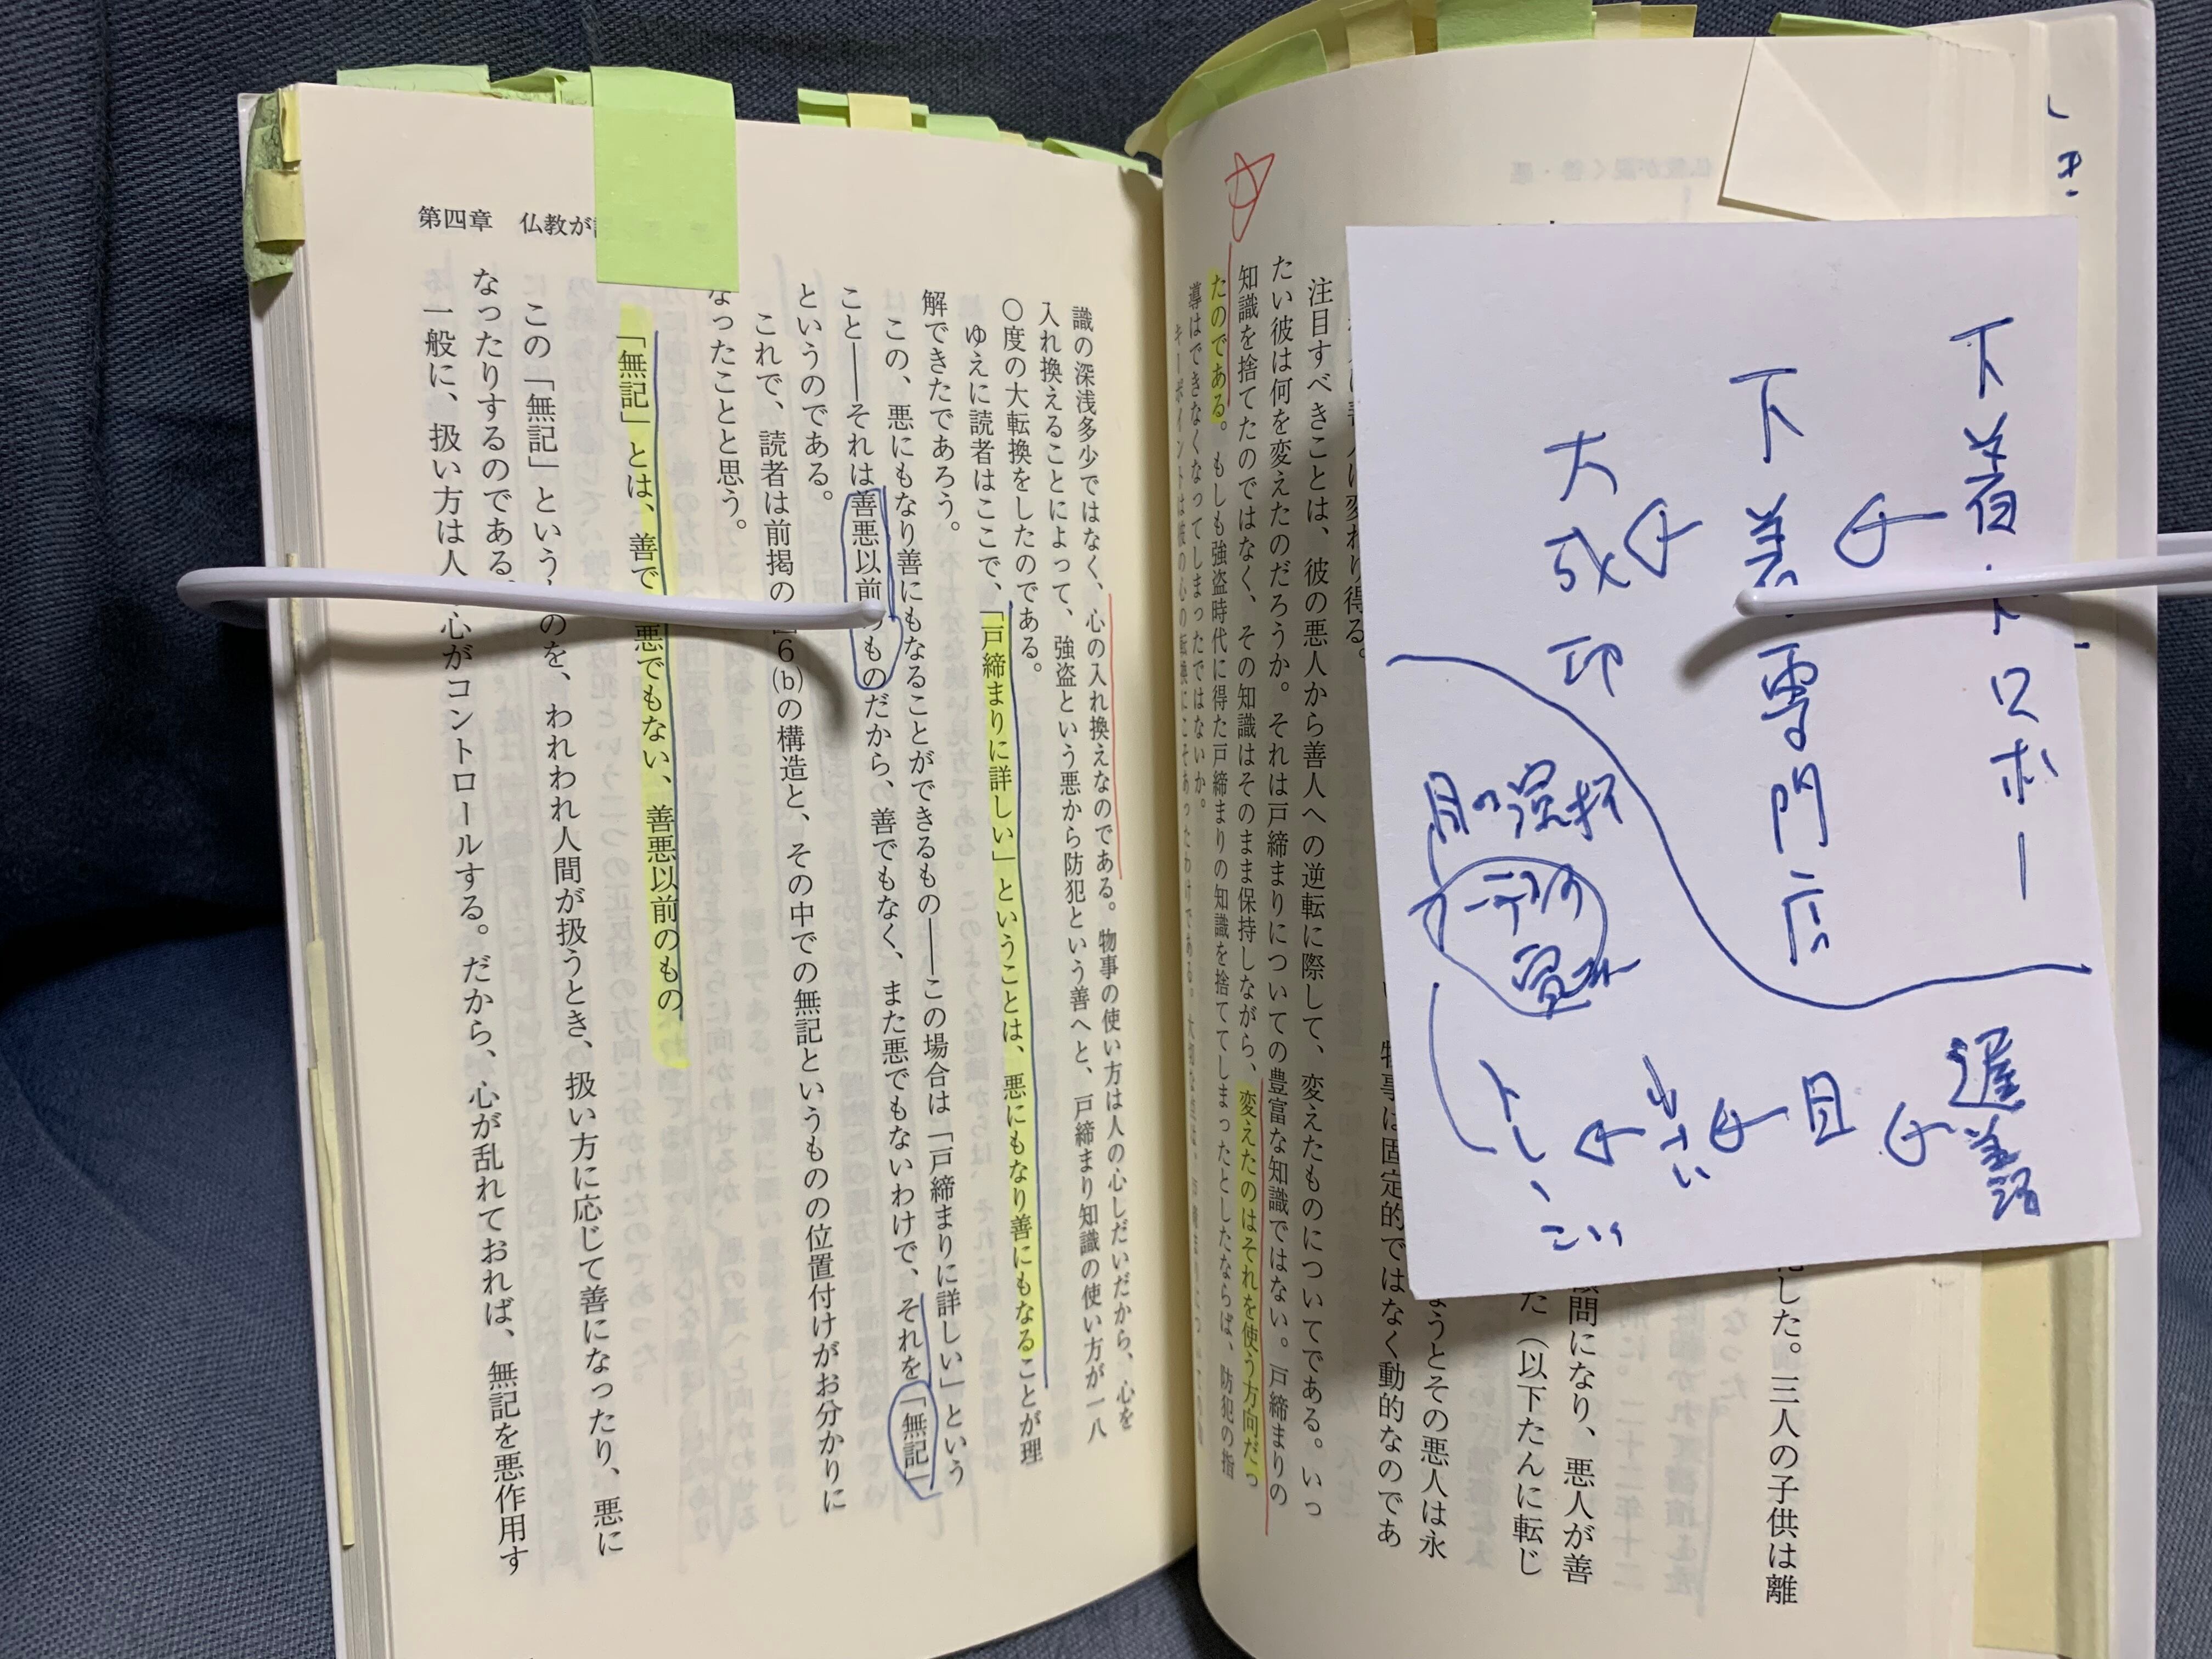 した。三人の子供は離
問になり、悪人が善
た（以下たんに転じ
ようとその悪人は永
物事は固定的ではなく動的なのであ
変わり得る。
注目すべきことは、彼の悪人から善人への逆転に際して、変えたものについてである。いっ
たい彼は何を変えたのだろうか。それは戸締まりについての豊富な知識ではない。戸締まりの
知識を捨てたのではなく、その知識はそのまま保持しながら、変えたのはそれを使う方向だっ
たのである。もしも強盗時代に得た戸締まりの知識を捨ててしまったとしたならば、防犯の指
導はできなくなってしまったではないか。
キーポイントは彼の心の転換にこそあったわけである。大切な
識の深浅多少ではなく、心の入れ換えなのである。物事の使い方は人の心しだいだから、心を
入れ換えることによって、強盗という悪から防犯という善へと、戸締まり知識の使い方が一八
〇度の大転換をしたのである。
ゆえに読者はここで、「戸締まりに詳しい」ということは、悪にもなり善にもなることが理
解できたであろう。
この、悪にもなり善にもなることができるもの――この場合は「戸締まりに詳しい」という
こと――それは善悪以前のものだから、善でもなく、また悪でもないわけで、それを「無記」
というのである。
これで、読者は前掲の 6(b)の構造と、その中での無記というものの位置付けがお分かりに
なったことと思う。
「無記」とは、善で 悪でもない、善悪以前のもの
この「無記」という のを、われわれ人間が扱うとき、扱い方に応じて善になったり、悪に
なったりするのである。
一般に、扱い方は人 心がコントロールする。だから、心が乱れておれば、無記を悪作用す
第四章 仏教が
下着ドロボー
下着専門店
大成功
目
トーく